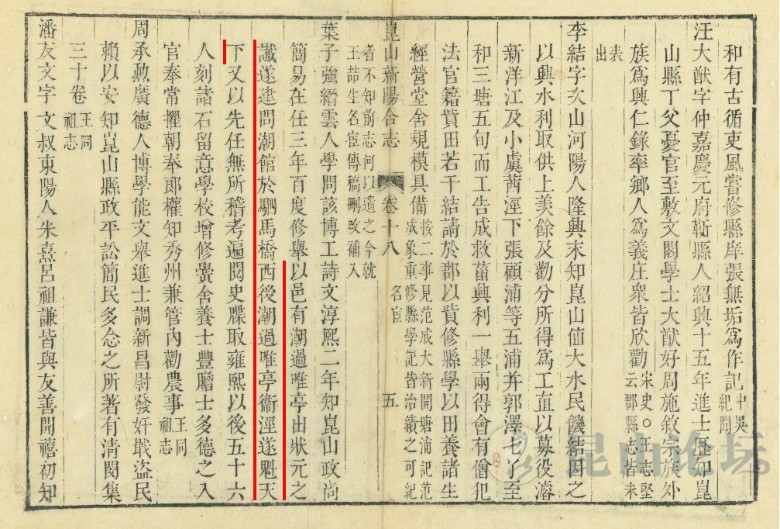 和有古循吏風嘗修縣庠張無垢為作記中吳紀聞
汪大猷字仲嘉慶元府鄞縣人紹興十五年進士歷知崑
山縣丁父憂官至敷文閣學士大猷好周施敘宗族外
族為興仁錄率鄉人為義庄衆皆欣勸宋史○王志堅云郡縣志未
出表
李結字次山河陽人隆興末知崑山值大水民饑結因之
以興水利取供上美餘及勸分所得為工直以募役濬
新洋江及小虞茜涇下張顧浦等五浦并郭澤七了至
和三塘五旬而工告成救菑興利一舉兩得會有僧犯
法官籍貲田若干結請於郡以貲修縣學以田養諸生
經營堂舍規模具備按二事見范成大新開塘浦記范成象重修縣學記皆治績之可紀
崑山新陽合志
卷十八
名宦
五
者不知前志何以遺之今就王喆生名宦傳稿刪改補入
葉子強縉雲人學問該博工詩文淳熙二年知崑山政尚
簡易在任三年百度修舉以邑有潮過唯亭出狀元之
讖遂建問潮館於駟馬橋西後潮過唯亭衞涇遂魁天
下又以先任無所稽考遍閱史牒取雍熙以後五十六
人刻諸石留意學校增修黌舍養士豐贍士多德之入
官奉常擢朝奉郎權知秀州兼管內勸農事王同祖志
周承勳廣德人博學能文舉進士調新昌尉發奸戢盜民
賴以安知崑山縣政平訟簡民多念之所著有清閟集
三十卷王同祖志
潘友文字文叔東陽人朱熹呂祖謙皆與友善開禧初知
昆山论坛